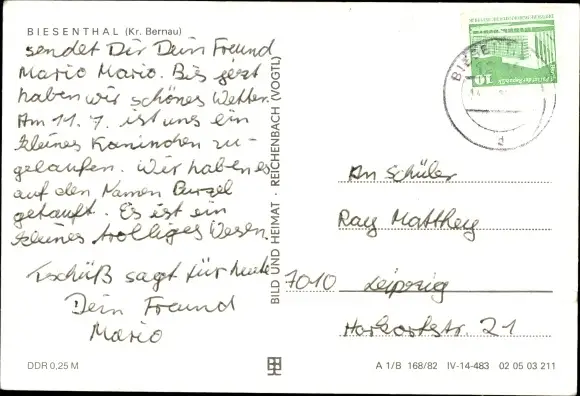 BIESENTHAL (Kr. Bernau)
sendet Dir Dein Freund
Mario Mario. Bis jetzt
haben wir schönes Wetter.
Am 11. 7. ist uns ein
kleines Kaninchen zu-
gelaufen. Wir haben es
auf den Namen Burzel
getauft. Es ist ein
kleines trolliges Wesen.
Tschüß sagt für heute
Dein Freund
Mario
DDR 0,25 M
BILD UND HEIMAT · REICHENBACH (VOGTL)
10
BIESE
d
An Schüler
Ray Matthey
7010 Leipzig
Harkortstr. 21
A 1/B 168/82 IV-14-483 02 05 03 211